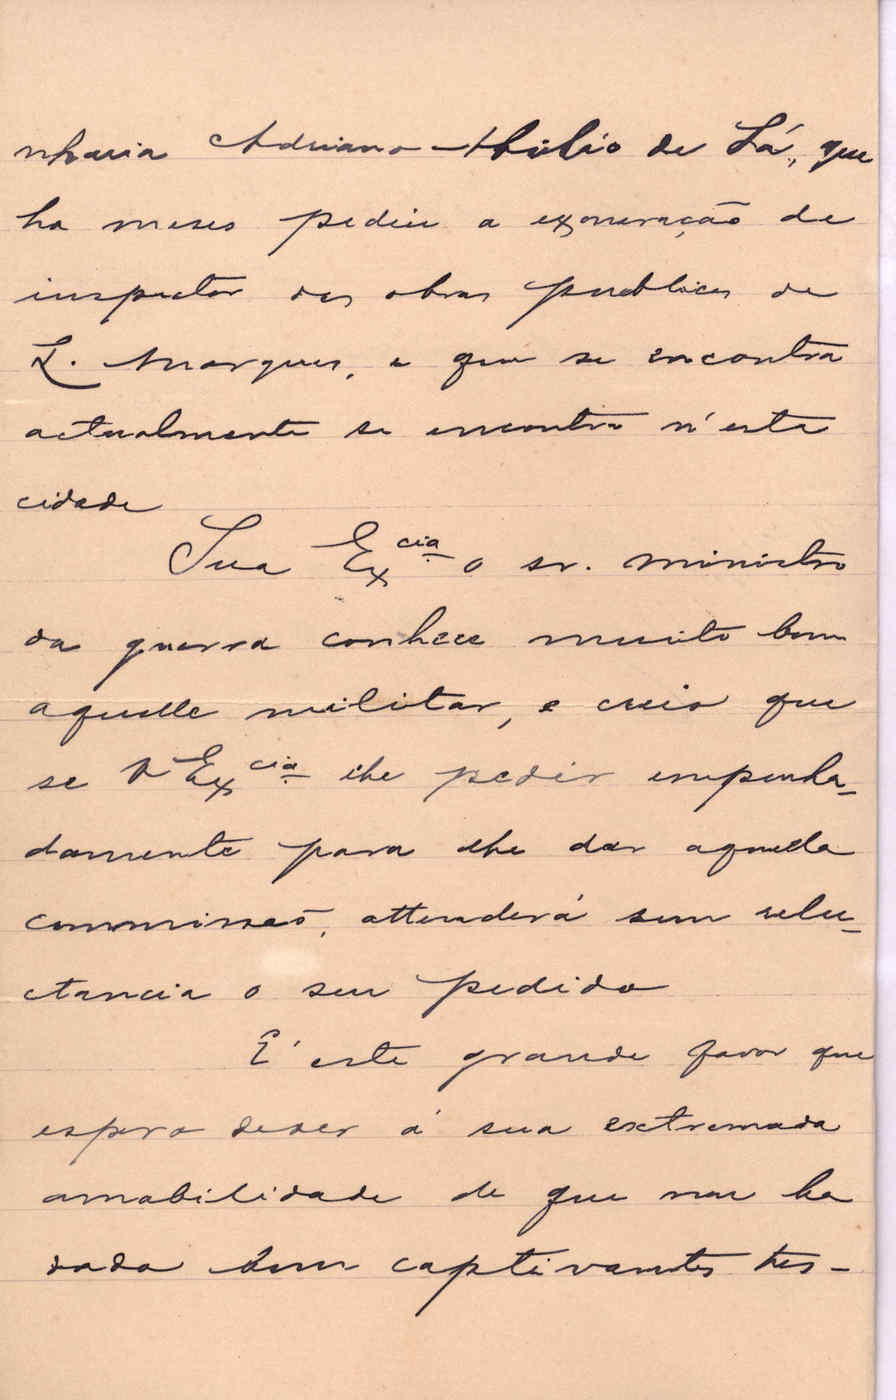 nharia Adriano Abilio de Sá, que
ha meses pediu a exoneração de
inspector das obras publicas de
L. Marques, e que se encontra
actualmente se encontra n'esta
cidade
Sua Excia o sr. ministro
da guerra conhece muito bem
aquelle militar, e creio que
se V Excia lhe pedir empenha-
damente para lhe dar aquella
commissão, attenderá sem relu-
ctancia o seu pedido
E' este grande favor que
espero dever á sua extremada
amabilidade de que me ha
dado bem captivantes tes-